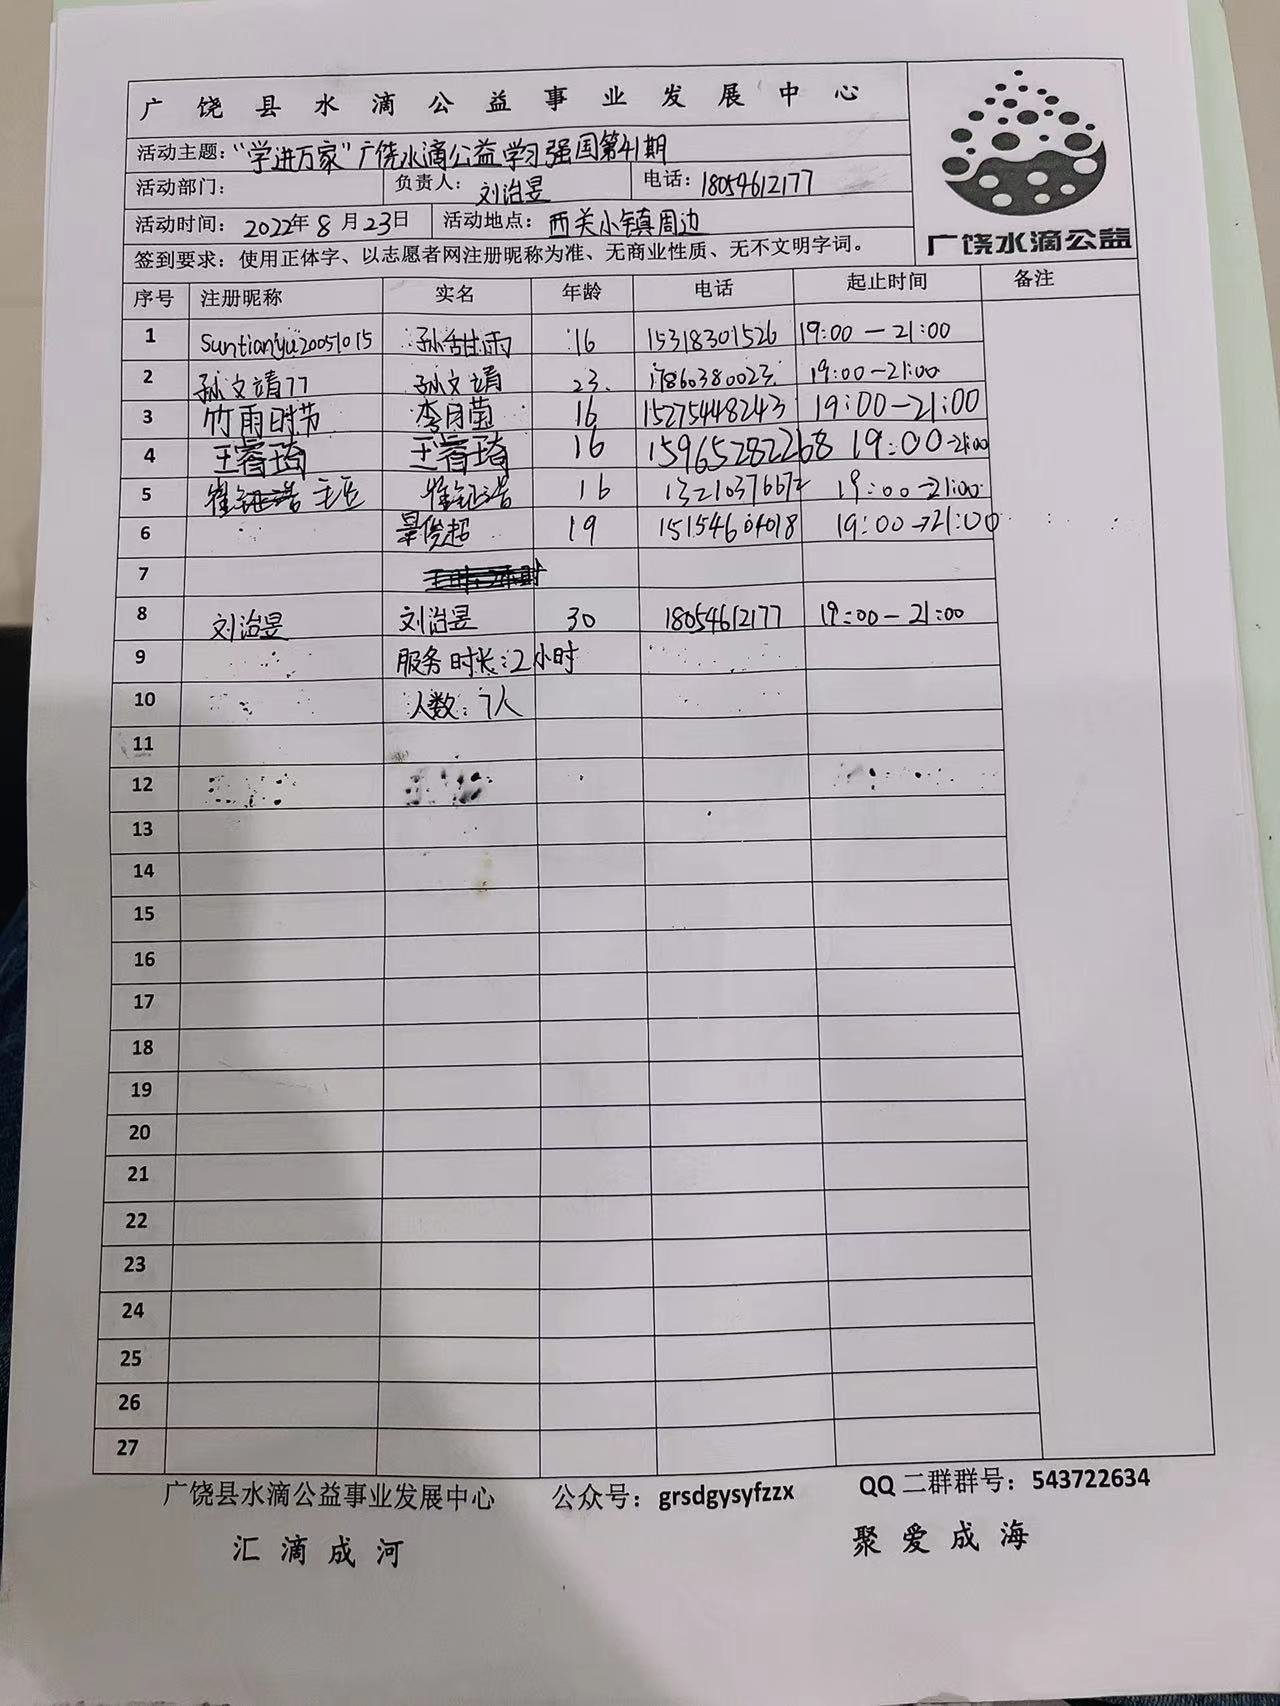 广饶县水滴公益事业发展中心
活动主题：“学进万家”广饶水滴公益学习强国第41期
活动部门： 负责人：刘治昱 电话：18054612177
活动时间：2022年8月23日 活动地点：西关小镇周边
广饶水滴公益
签到要求：使用正体字、以志愿者网注册昵称为准、无商业性质、无不文明字词。
序号 注册昵称 实名 年龄 电话 起止时间 备注
1 Suntianyu20051015 孙甜雨 16 15318301526 19:00—21:00
2 孙文靖77 孙文靖 23 17860380023 19:00—21:00
3 竹雨时节 李月莹 16 15275448243 19:00—21:00
4 王睿琦 王睿琦 16 15965282268 19:00—21:00
5 崔钲浩 崔钲浩 16 13210376672 19:00—21:00
6 俊超 19 19:00→21:00
7
8 刘治昱 刘治昱 30 18054612177 19:00—21:00
9 服务时长：2小时
10 人数：7人
11
12
13
14
15
16
17
18
19
20
21
22
23
24
25
26
27
广饶县水滴公益事业发展中心 公众号：grsdgysyfzzx QQ二群群号：543722634
汇滴成河 聚爱成海